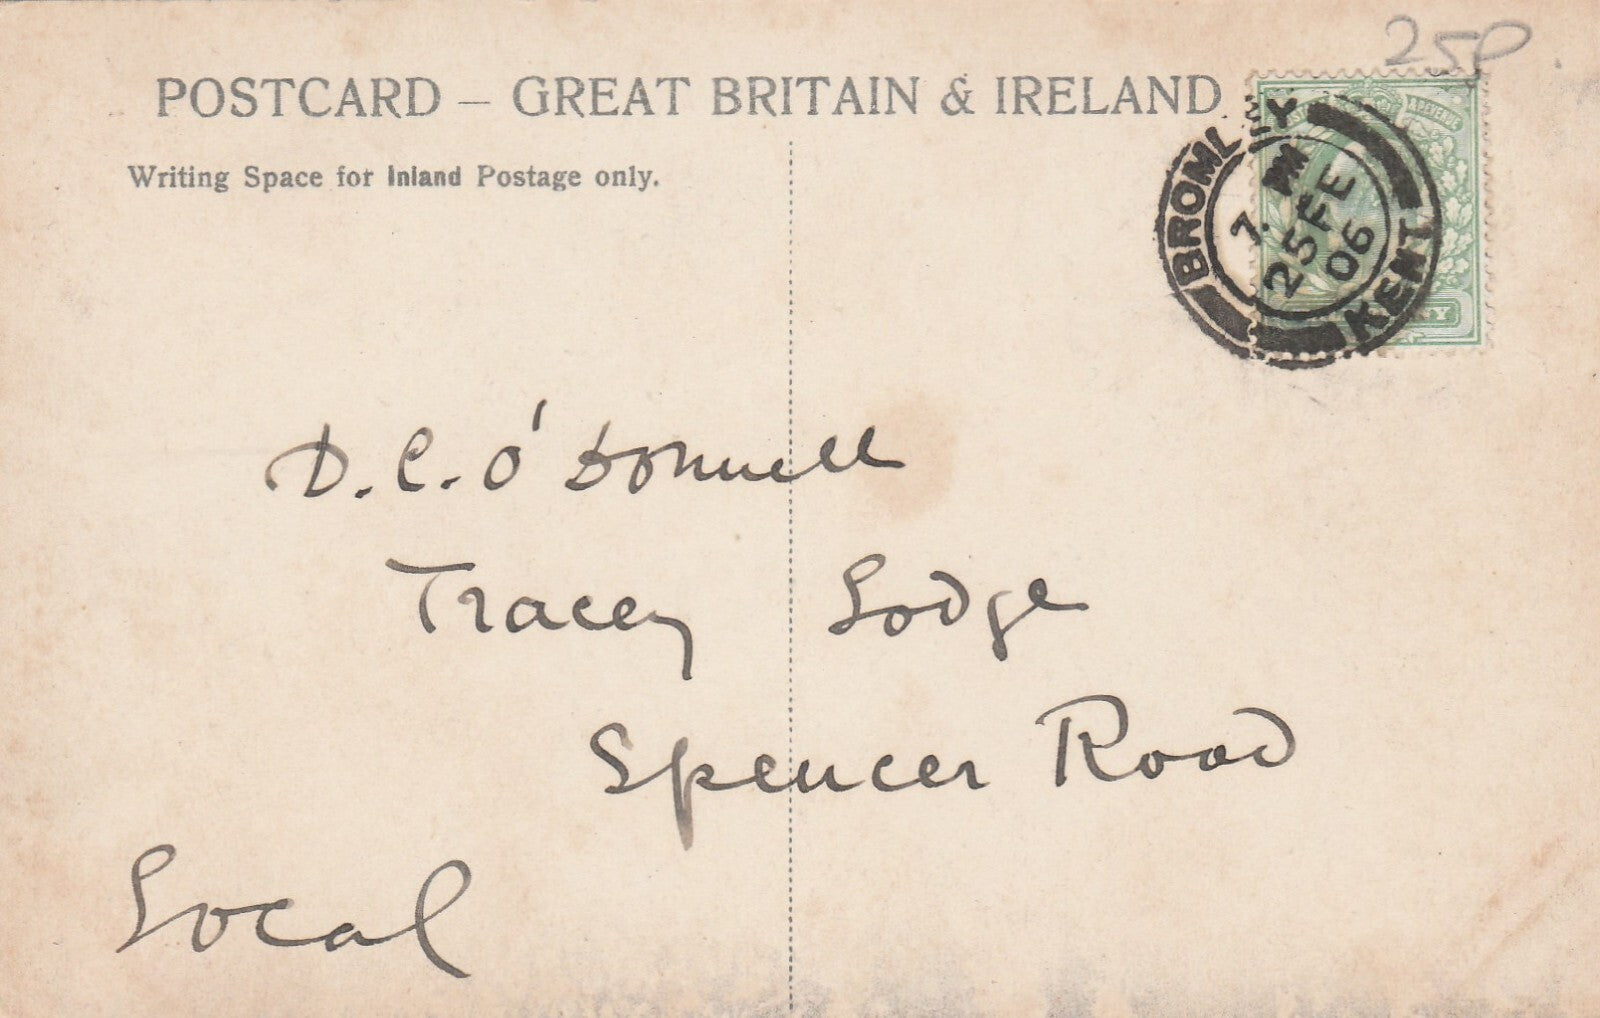 25p
POSTCARD – GREAT BRITAIN & IRELAND.
Writing Space for Inland Postage only.
BROMLEY
7. PM
25 FE
06
KENT
D. C. O'Donnell
Tracey Lodge
Spencer Road
Local